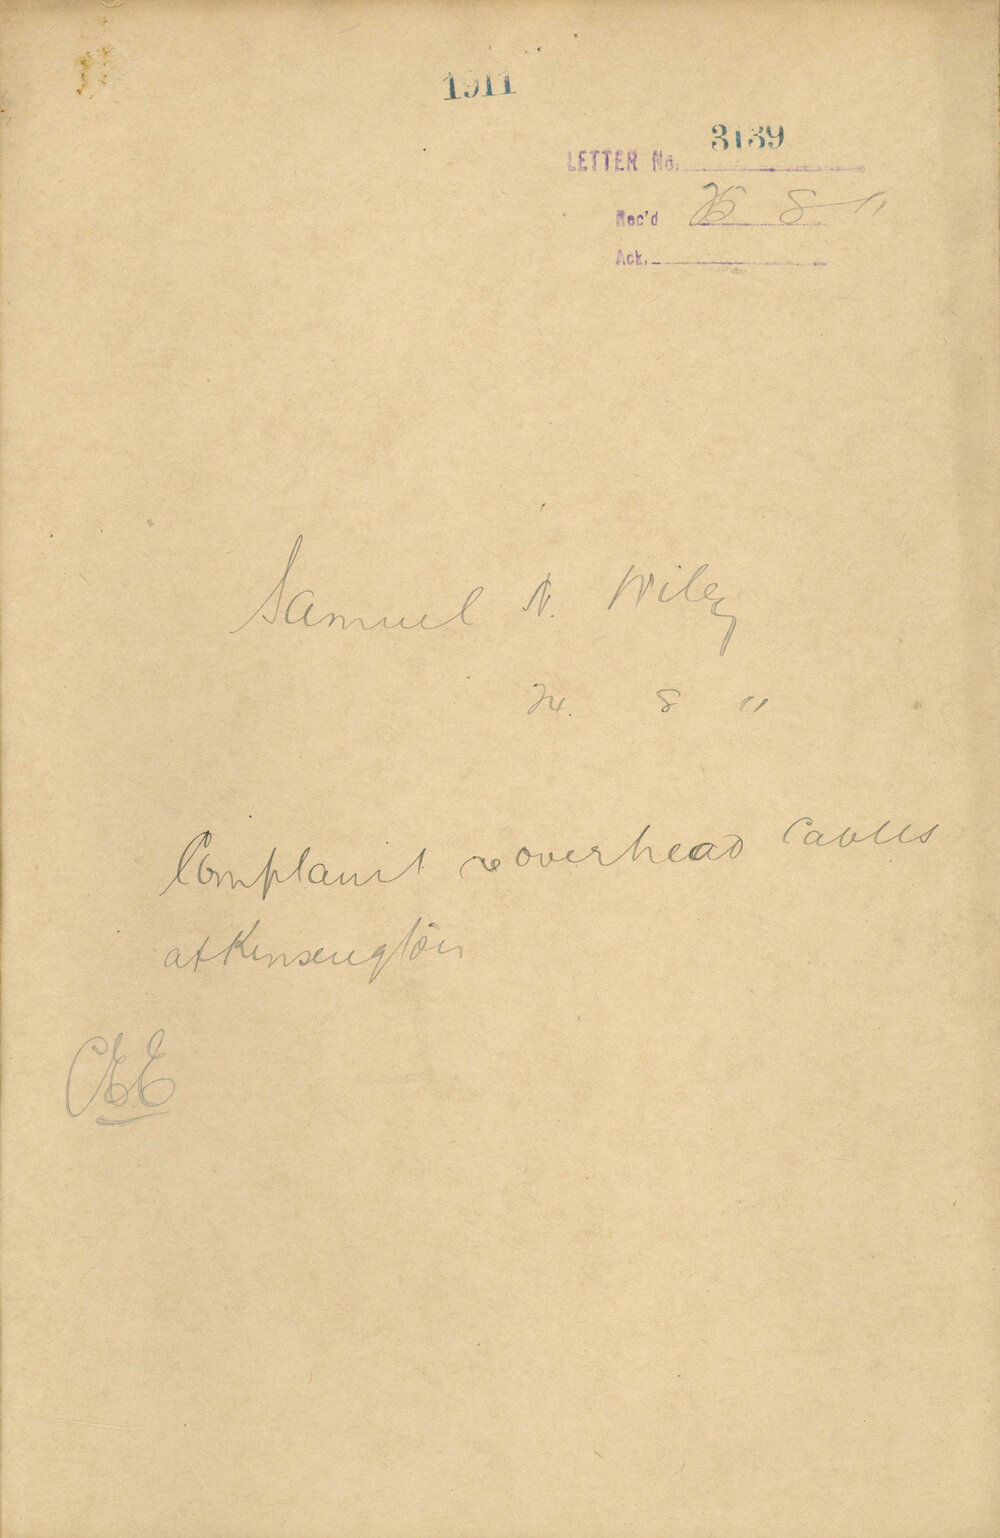 1911
3139
LETTER No.
Rec'd 25 8 11
Ack.
Samuel N. Wiley
24. 8 11
Complaint re overhead Cables
at Kensington
CEE